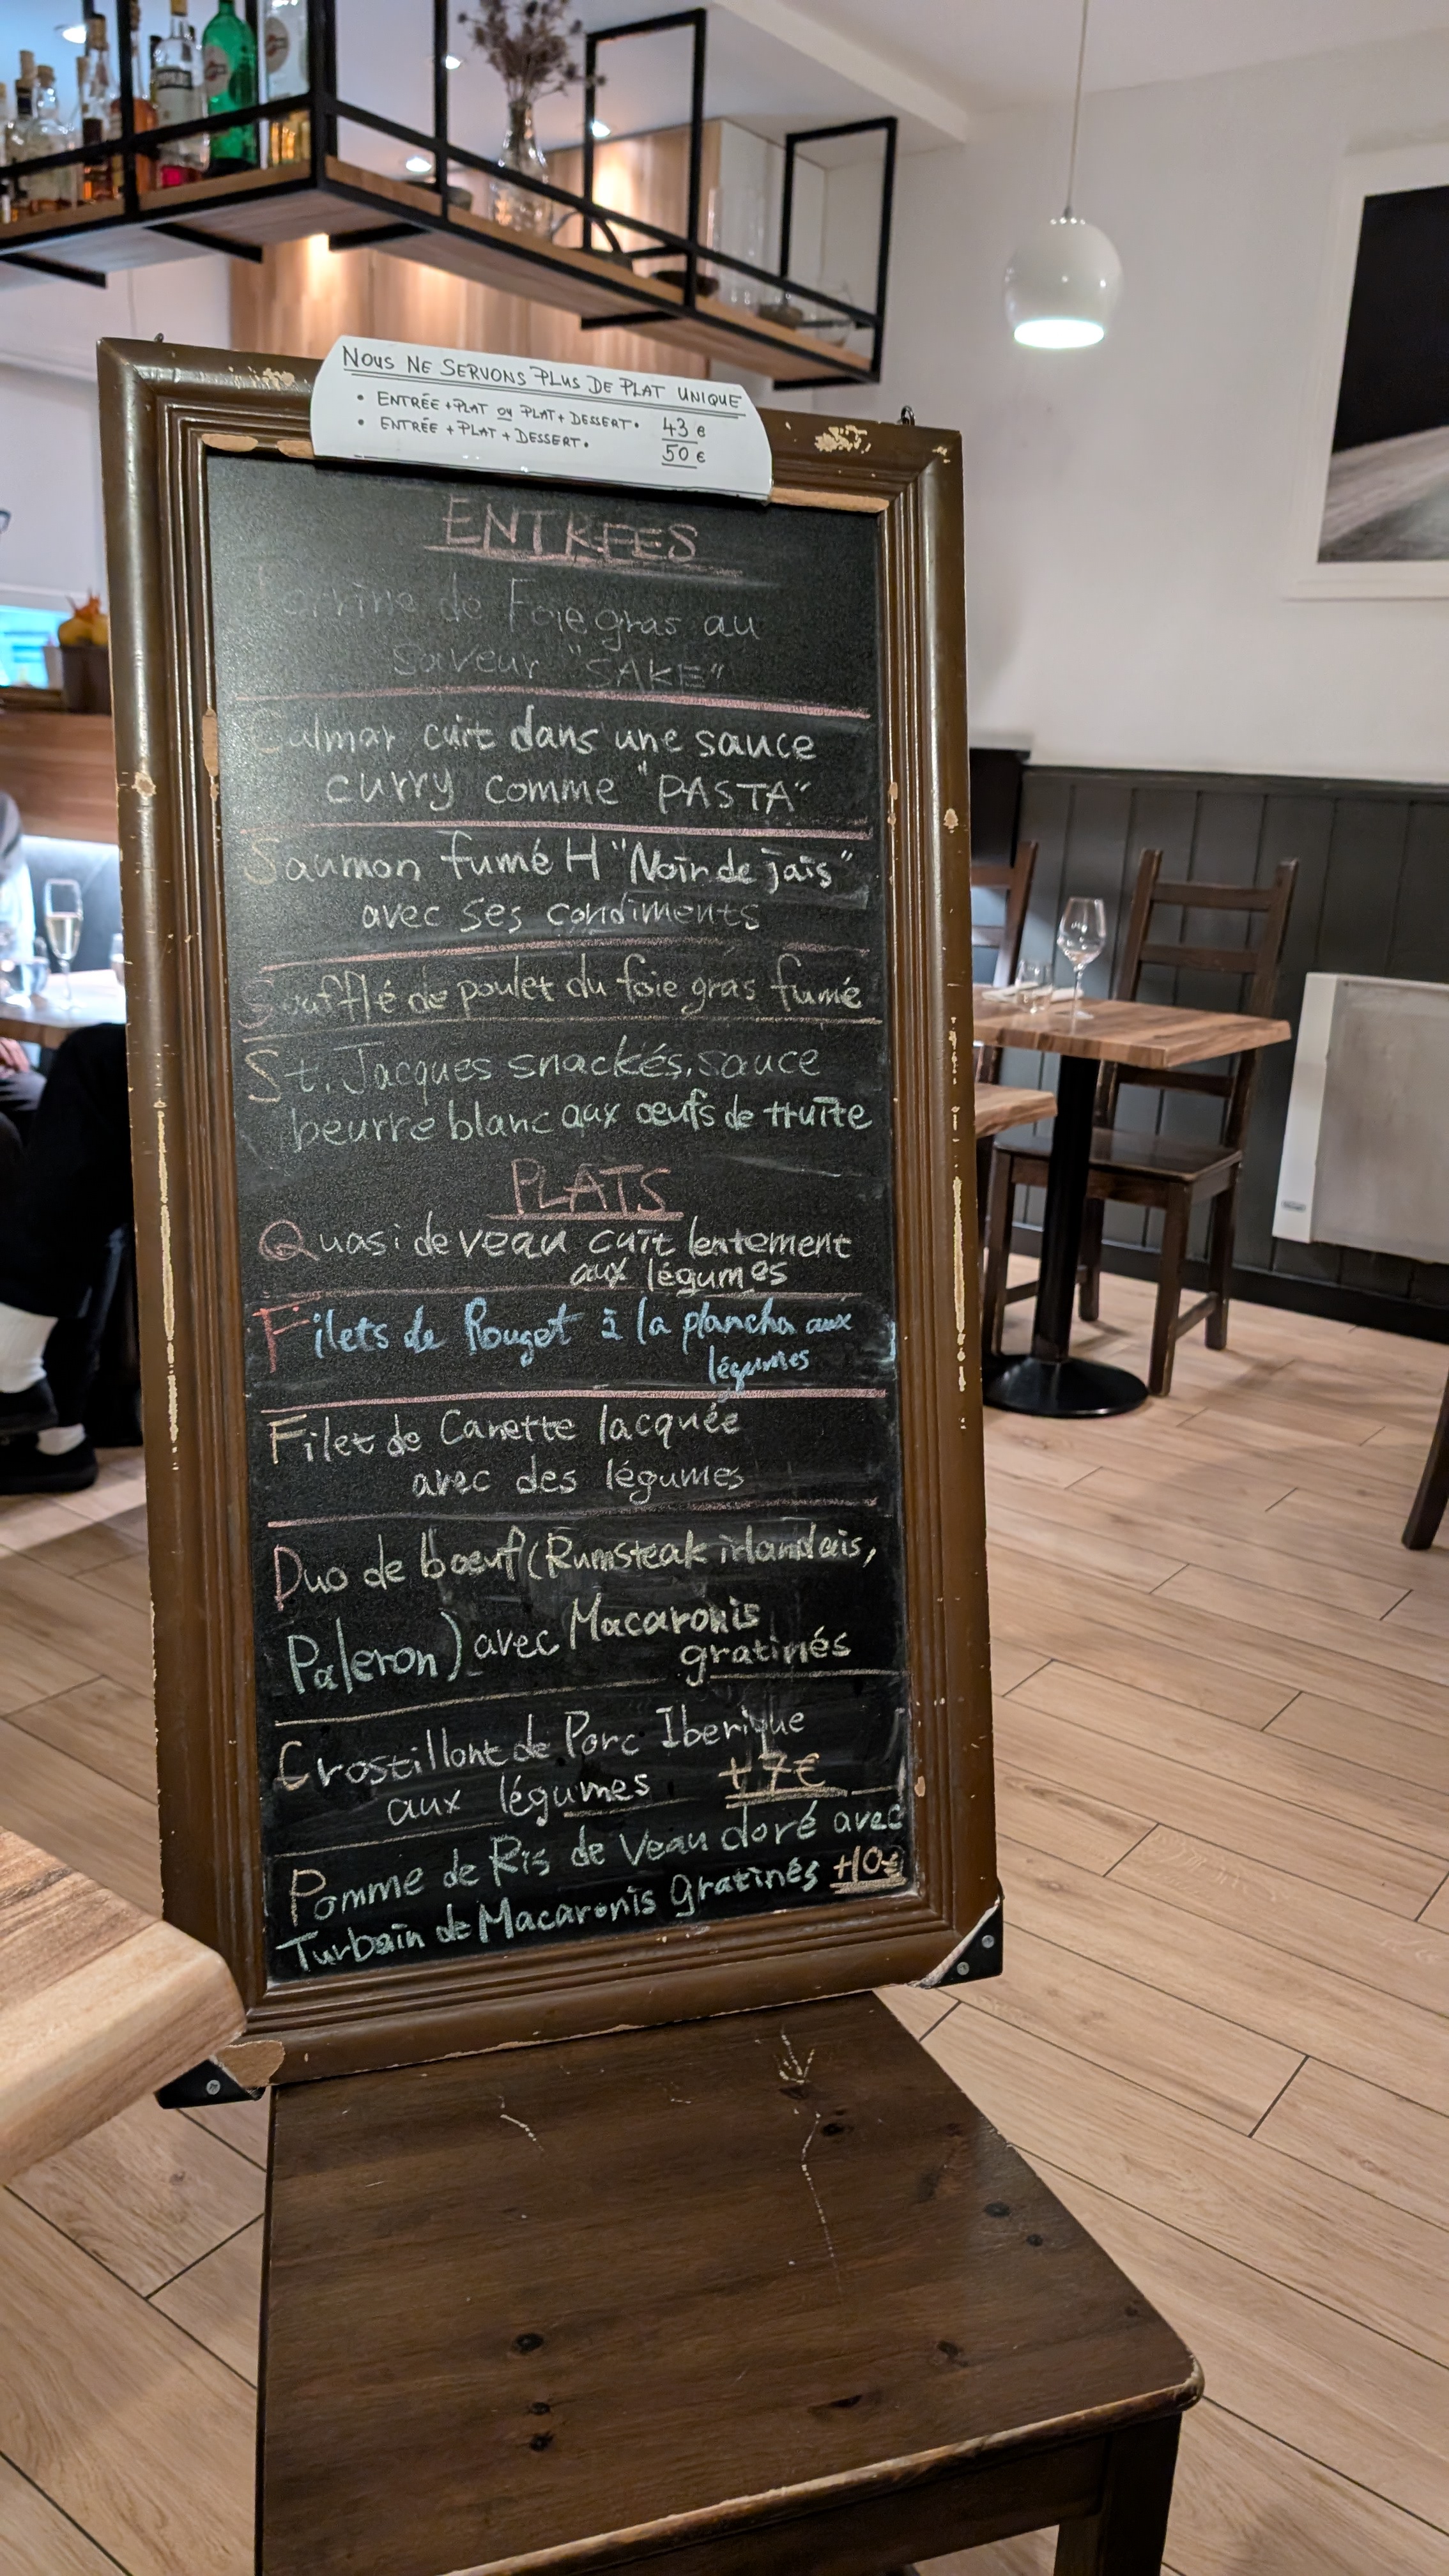 NOUS NE SERVONS PLUS DE PLAT UNIQUE
• ENTRÉE + PLAT OU PLAT + DESSERT. 43 €
• ENTRÉE + PLAT + DESSERT. 50 €
ENTREES
Terrine de Foie gras au
saveur "SAKE"
Calmar cuit dans une sauce
curry comme "PASTA"
Saumon fumé H "Noir de jais"
avec ses condiments
Soufflé de poulet du foie gras fumé
St. Jacques snackés, sauce
beurre blanc aux œufs de truite
PLATS
Quasi de veau cuit lentement
aux légumes
Filets de Rouget à la plancha aux
légumes
Filet de Canette lacquée
avec des légumes
Duo de bœuf (Rumsteak irlandais,
Paleron) avec Macaronis
gratinés
Crostillont de Porc Iberique
aux légumes +7€
Pomme de Ris de Veau doré avec
Turbain de Macaronis Gratinés +10€